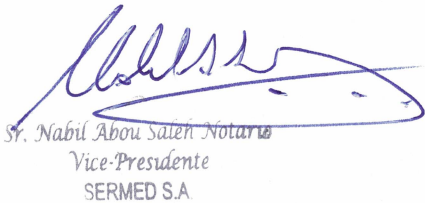 Sr. Nabil Abou Saleh Notario
Vice-Presidente
SERMED S.A.